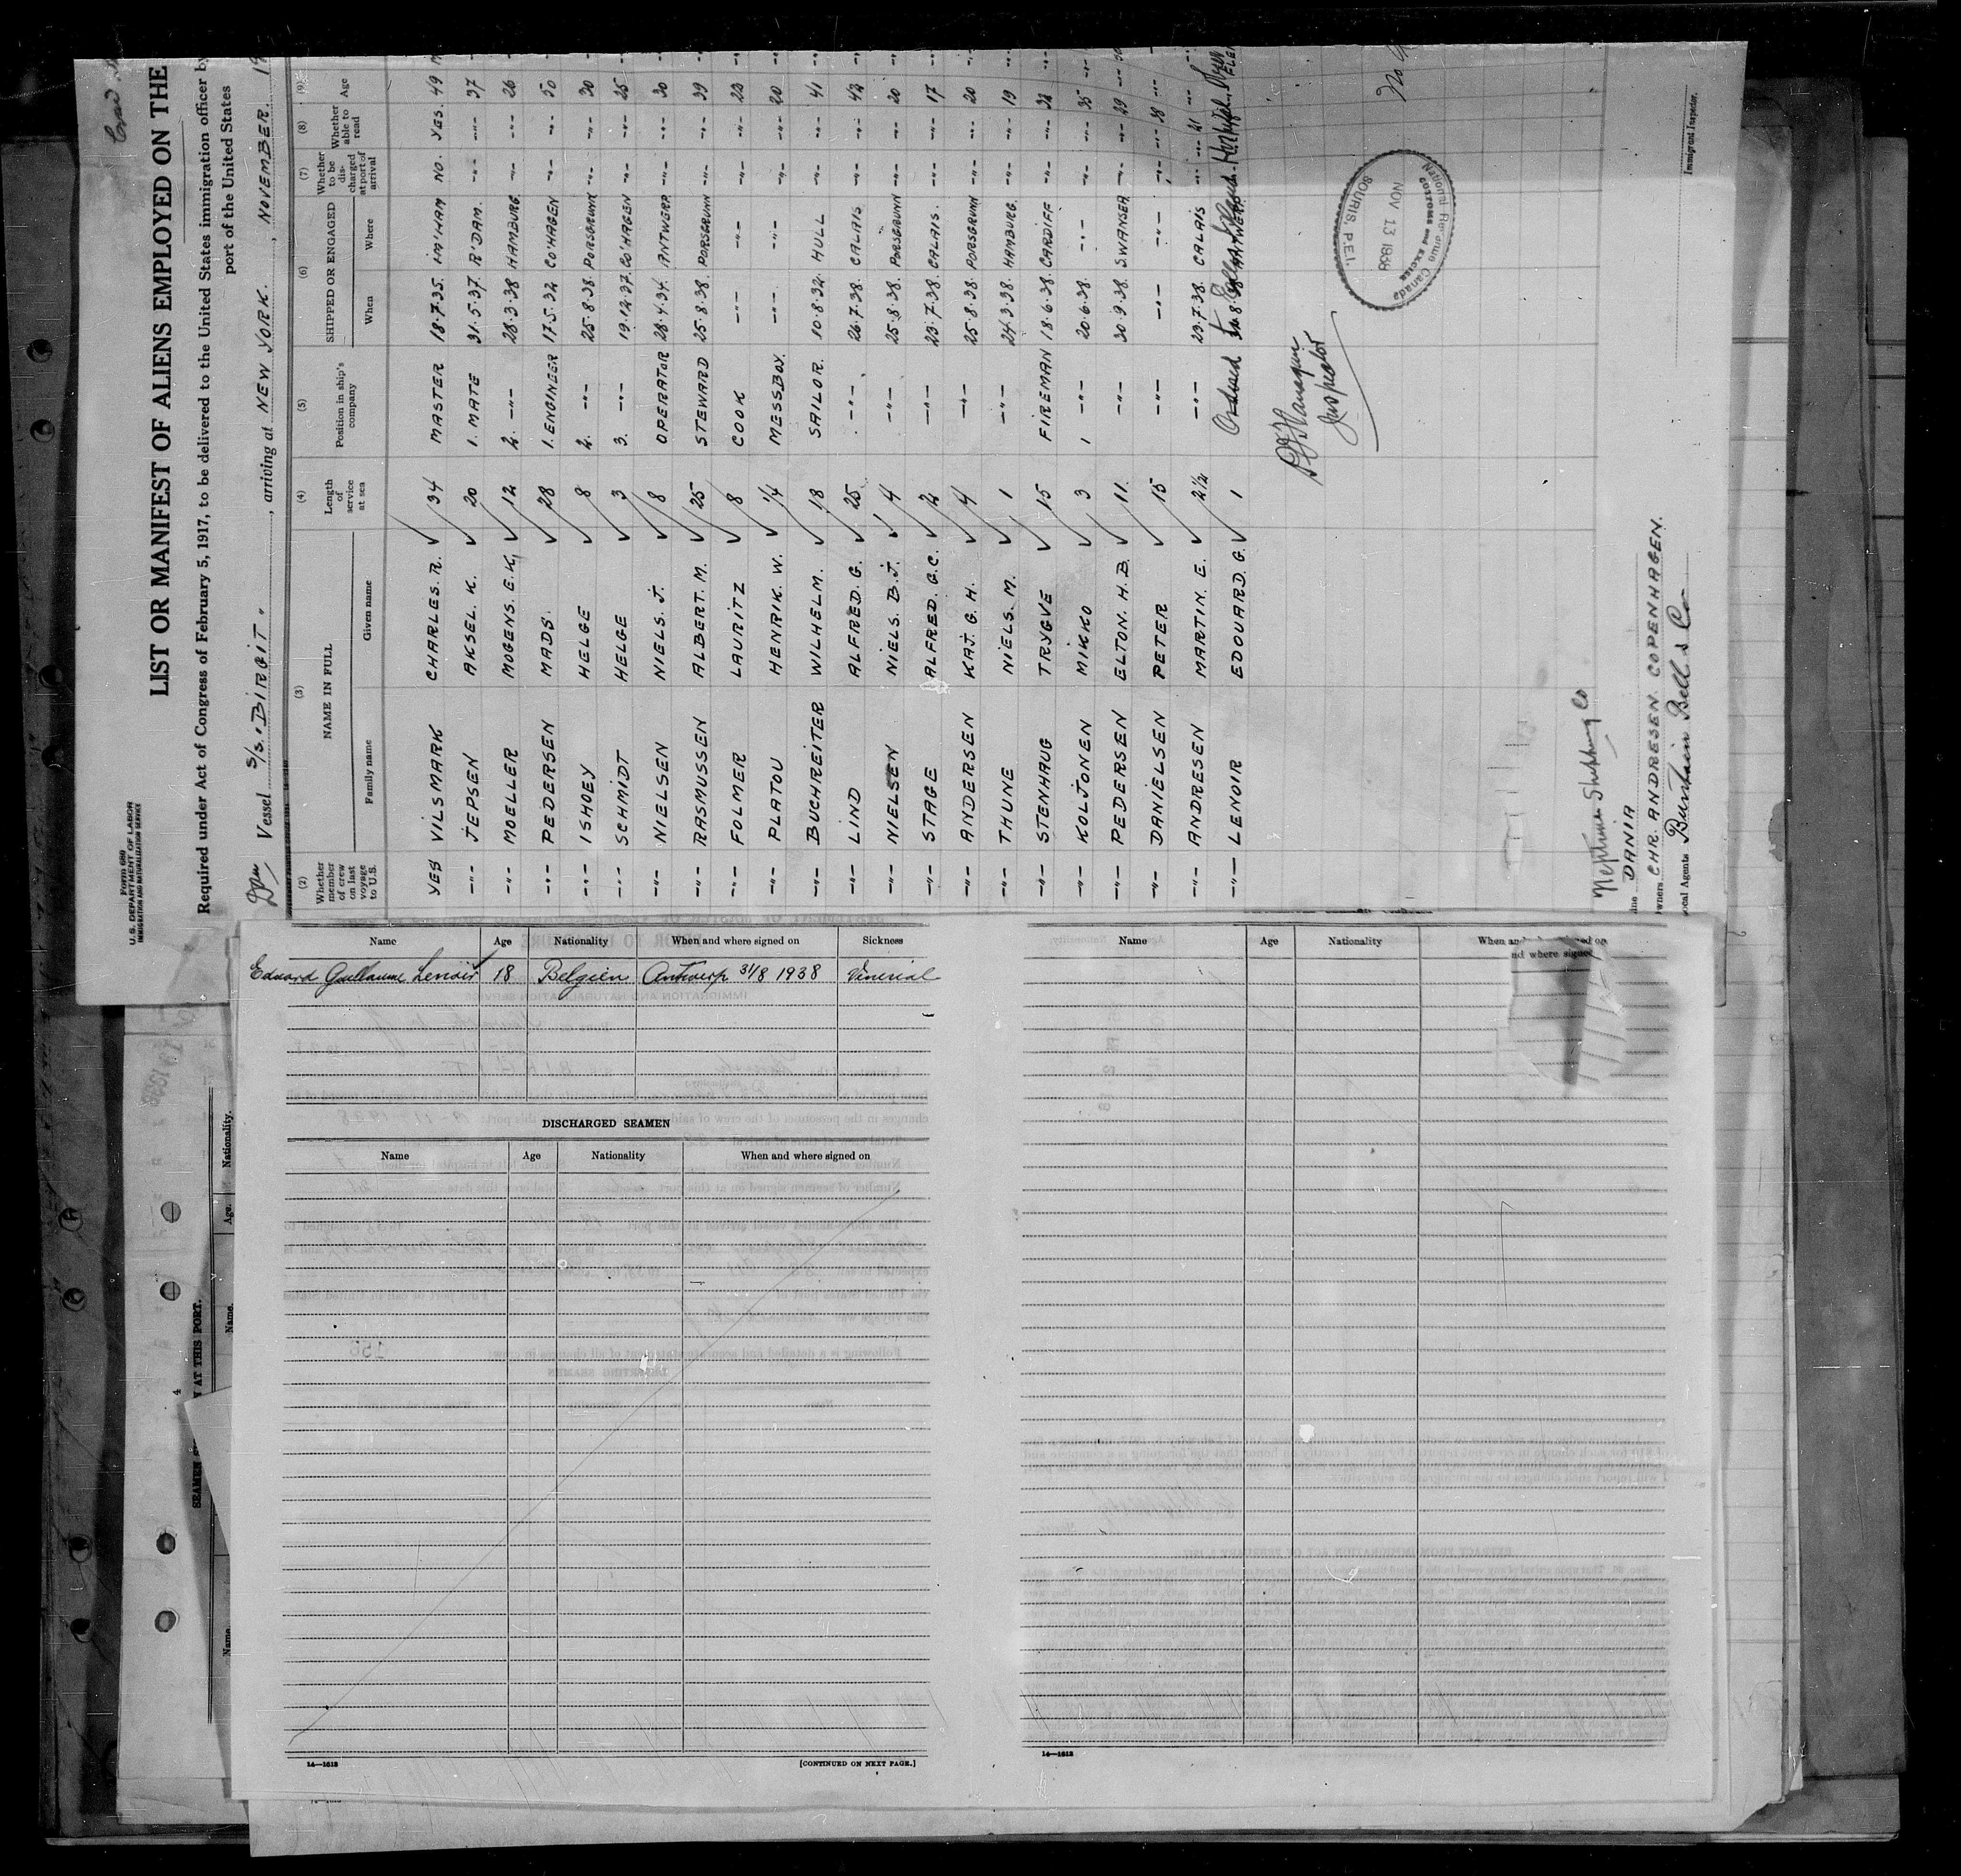 Form 689
U. S. DEPARTMENT OF LABOR
IMMIGRATION AND NATURALIZATION SERVICE
LIST OR MANIFEST OF ALIENS EMPLOYED ON THE
Required under Act of Congress of February 5, 1917, to be delivered to the United States immigration officer by
port of the United States
Vessel S/S. "BIRGIT", arriving at NEW YORK., NOVEMBER. 19
(2) (3) (4) (5) (6) (7) (8) (9)
Whether member of crew on last voyage to U.S. NAME IN FULL Family name Given name Length of service at sea Position in ship's company SHIPPED OR ENGAGED When Where Whether to be discharged at port of arrival Whether able to read Age
YES VILSMARK CHARLES. R. 34 MASTER 18.7.35. IM'HAM NO. YES. 49
-"- JEPSEN AKSEL. K. 20 1. MATE 31.5.37. R'DAM. -"- -"- 37
-"- MOELLER MOGENS. E. K. 12 2. -"- 28.3.38 HAMBURG. -"- -"- 26
-"- PEDERSEN MADS. 28 1. ENGINEER 17.5.32 CO'HAGEN -"- -"- 50
-"- ISHOEY HELGE 8 2. -"- 25.8.38. PORSGRUNN -"- -"- 30
-"- SCHMIDT HELGE 3 3. -"- 19.12.37. CO'HAGEN -"- -"- 25
-"- NIELSEN NIELS. J. 8 OPERATOR 28.4.34. ANTWERP -"- -"- 30
-"- RASMUSSEN ALBERT. M. 25 STEWARD 25.8.38. PORSGRUNN -"- -"- 39
-"- FOLMER LAURITZ 8 COOK -"- -"- -"- -"- 23
-"- PLATOU HENRIK. W. 1/4 MESSBOY. -"- -"- -"- -"- 20
-"- BUCHREITER WILHELM. 18 SAILOR. 10.8.32. HULL -"- -"- 41
-"- LIND ALFRED. G. 25 -"- 26.7.38. CALAIS -"- -"- 42
-"- NIELSEN NIELS. B. J. 4 -"- 25.8.38. PORSGRUNN -"- -"- 20
-"- STAGE ALFRED. G. C. 2 -"- 23.7.38. CALAIS. -"- -"- 17
-"- ANDERSEN KAJ. G. H. 4 -"- 25.8.38. PORSGRUNN -"- -"- 20
-"- THUNE NIELS. M. 1 -"- 24.3.38. HAMBURG. -"- -"- 19
-"- STENHAUG TRYGVE 15 FIREMAN 18.6.38. CARDIFF -"- -"- 32
-"- KOLJONEN MIKKO 3 -"- 20.6.38. -"- -"- -"- 35
-"- PEDERSEN ELTON. H. B. 11. -"- 30.9.38. SWANSEA -"- -"- 29
-"- DANIELSEN PETER 15 -"- -"- -"- -"- -"- 38
-"- ANDRESEN MARTIN. E. 2 1/2 -"- 23.7.38. CALAIS -"- -"- 21
-"- LENOIR EDOUARD. G. 1 31.8.38 ANTWERP
Inspector
National Revenue Canada
CUSTOMS AND EXCISE
NOV 13 1938
SOURIS, P.E.I.
Immigrant Inspector.
Neptune Shipping Co
DANIA
CHR. ANDRESEN. COPENHAGEN.
Local Agents Buntain Bell & Co
Name Age Nationality When and where signed on Sickness
Eduard Guillaume Lenoir 18 Belgien Antwerp 31/8 1938 Venerial
DISCHARGED SEAMEN
Name Age Nationality When and where signed on
14—1613
[CONTINUED ON NEXT PAGE.]
Name Age Nationality When and where signed on
14—1613
Nationality.
Age.
Name.
AT THIS PORT.
Name.